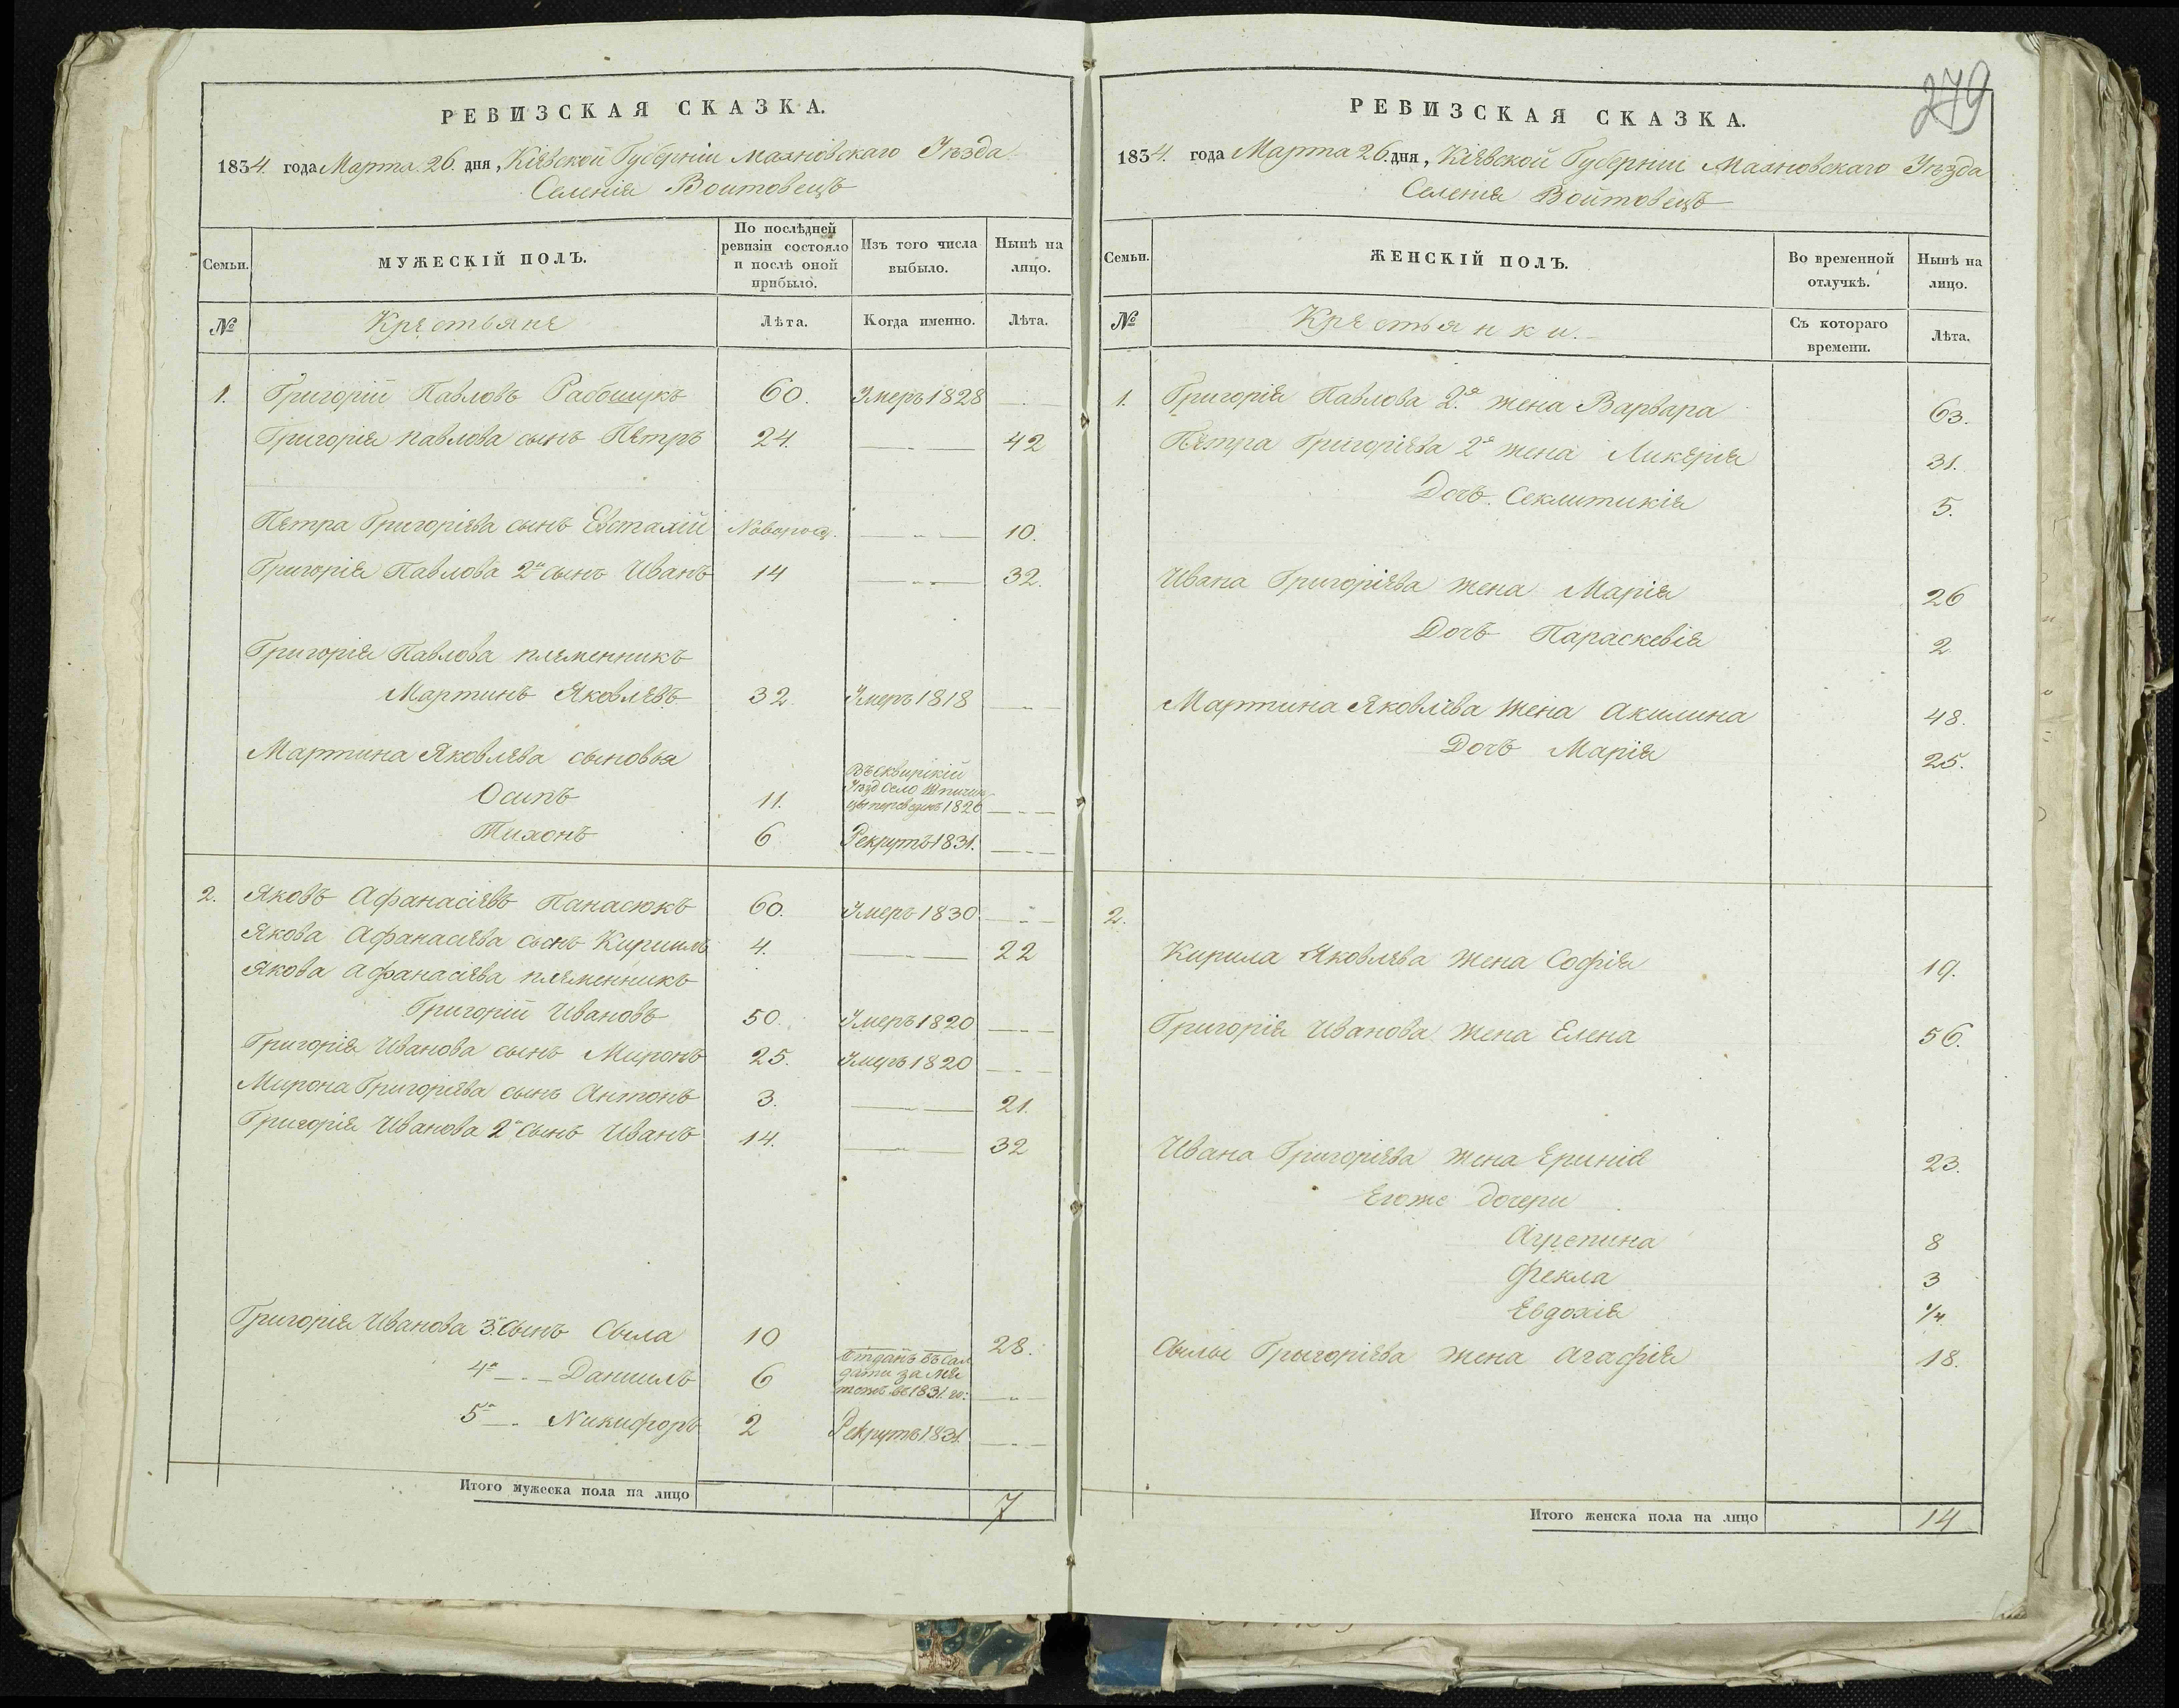 РЕВИЗСКАЯ СКАЗКА.
1834. года Марта 26. дня, Кіевской Губерніи Махновскаго Уѣзда
Селенія Войтовецъ
Семьи.
МУЖЕСКІЙ ПОЛЪ.
По послѣдней ревизіи состояло и послѣ оной прибыло.
Изъ того числа выбыло.
Нынѣ на лицо.
№
Крестьяне
Лѣта.
Когда именно.
Лѣта.
1. Григорій Павловъ Рабошукъ 60. Умеръ 1828
Григорія Павлова сынъ Петръ 24. 42
Петра Григоріева сынъ Евстахій Новорож. 10.
Григорія Павлова 2й сынъ Иванъ 14 32.
Григорія Павлова племенникъ
Мартинъ Яковлевъ 32 Умеръ 1818
Мартина Яковлева сыновья
Осипъ 11. Въ Сквирскій
Уѣзд Село Шпичин
цы переведенъ 1826
Тихонъ 6 Рекрутъ 1831.
2. Яковъ Афанасіевъ Панасюкъ 60. Умеръ 1830
Якова Афанасіева сынъ Кирилъ 4. 22
Якова Афанасіева племенникъ
Григорій Ивановъ 50. Умеръ 1820
Григорія Иванова сынъ Миронъ 25. Умеръ 1820
Мирона Григоріева сынъ Антонъ 3. 21.
Григорія Иванова 2й сынъ Иванъ 14. 32
Григорія Иванова 3й сынъ Сыла 10 28.
4й Даниилъ 6 Отданъ въ сол
даты за мя
тежъ въ 1831. го:
5й Никифоръ 2 Рекрутъ 1831.
Итого мужеска пола на лицо 7
279
РЕВИЗСКАЯ СКАЗКА.
1834. года Марта 26. дня, Кіевской Губерніи Махновскаго Уѣзда
Селенія Войтовецъ
Семьи.
ЖЕНСКІЙ ПОЛЪ.
Во временной отлучкѣ.
Нынѣ на лицо.
№
Крестьянки.
Съ котораго времени.
Лѣта.
1. Григорія Павлова 2.я жена Варвара 63.
Петра Григоріева 2я жена Ликерія 31.
Дочь Секлитикія 5.
Ивана Григоріева жена Марія 26
Дочь Параскевія 2
Мартина Яковлева жена Акилина 48.
Дочь Марія 25.
2.
Кирила Яковлева жена Софія 19.
Григорія Иванова жена Елена 56.
Ивана Григоріева жена Еринія 23.
Егоже дочери
Агрепина 8
Фекла 3
Евдохія 1/4
Сылы Григоріева жена Агафія 18.
Итого женска пола на лицо 14